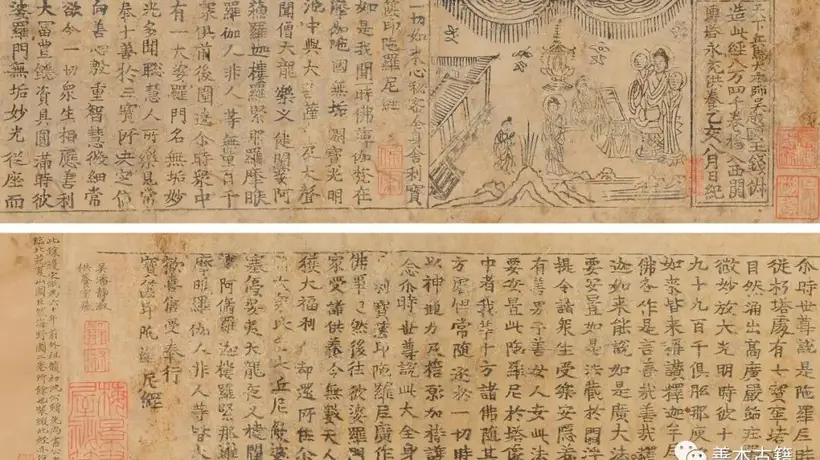 元帥吳越國王錢俶
造此經八万四千卷捨入西關
塼塔永充供養乙亥八月日紀
一切如来心秘密全身舍利寶
篋印陁羅尼經
如是我聞一時佛薄伽梵在
摩伽陁國無垢園寶光明
池中與大菩薩衆及大聲
聞僧天龍藥叉健闥婆阿
蘓羅迦樓羅緊那羅摩睺
羅伽人非人等無量百千
衆俱前後圍遶尒時衆中
有一大婆羅門名無垢妙
光多聞聡慧人所樂見常
奉十善於三寶所決定信
向善心殷重智慧微細常
欲令一切衆生相應善利
大富豊饒資具圓滿時彼
婆羅門無垢妙光從座而
尒時世尊說是陁羅尼時
從朽塔處有七寶窣堵
自然涌出高廣嚴飾莊
微妙放大光明時彼十
九十九百千俱胝那庾
如来皆来稱讃釋迦牟尼
佛各作是言善哉善哉釋
迦如来能說如是廣大法
要安置如是法藏於閻浮
提令諸衆生受樂安隱若
有善男子善女人安此法
要安置此陁羅尼於塔像
中者我等十方諸佛隨其
方處恒常隨逐於一切時
以神通力及誓願加持護
念尒時世尊說此大全身
利寶篋印陁羅尼廣作
佛事已然後往彼婆羅門
家受諸供養令無數天人
獲大福利已却還所住尒
比丘比丘尼優婆
塞優婆夷天龍夜叉犍闥
婆阿脩羅迦樓羅緊那羅
摩睺羅伽人非人等皆大
歡喜信受奉行
寶篋印陁羅尼經
善本古籍